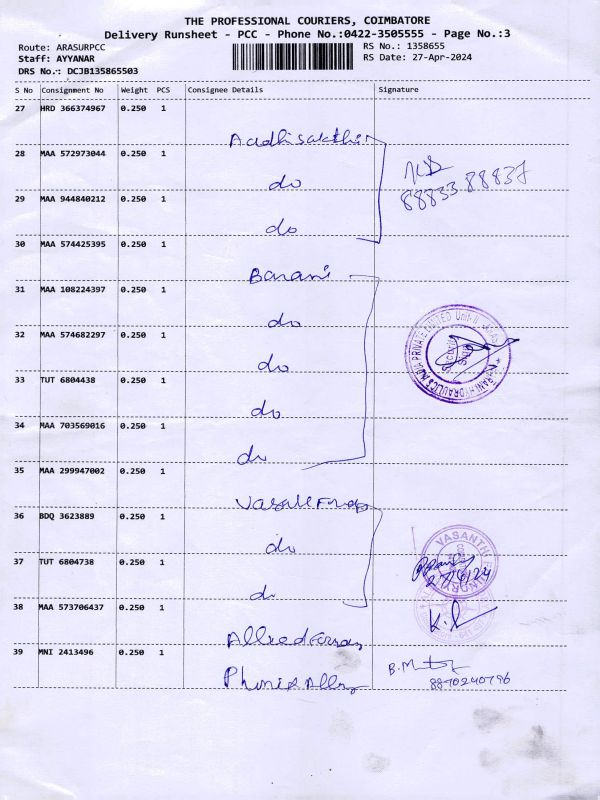 THE PROFESSIONAL COURIERS, COIMBATORE
Delivery Runsheet - PCC - Phone No.:0422-3505555 - Page No.:3
Route: ARASURPCC RS No.: 1358655
Staff: AYYANAR RS Date: 27-Apr-2024
DRS No.: DCJB135865503
S No Consignment No Weight PCS Consignee Details Signature
27 HRD 366374967 0.250 1
Aadhisakthi
28 MAA 572973044 0.250 1
do 88833 88837
29 MAA 944840212 0.250 1
do
30 MAA 574425395 0.250 1
Barani
31 MAA 108224397 0.250 1
do
32 MAA 574682297 0.250 1
do
33 TUT 6804438 0.250 1
do
34 MAA 703569016 0.250 1
do
35 MAA 299947002 0.250 1
36 BDQ 3623889 0.250 1
do VASANTHI
37 TUT 6804738 0.250 1
do 27/4/24
38 MAA 573706437 0.250 1
39 MNI 2413496 0.250 1
8870240796